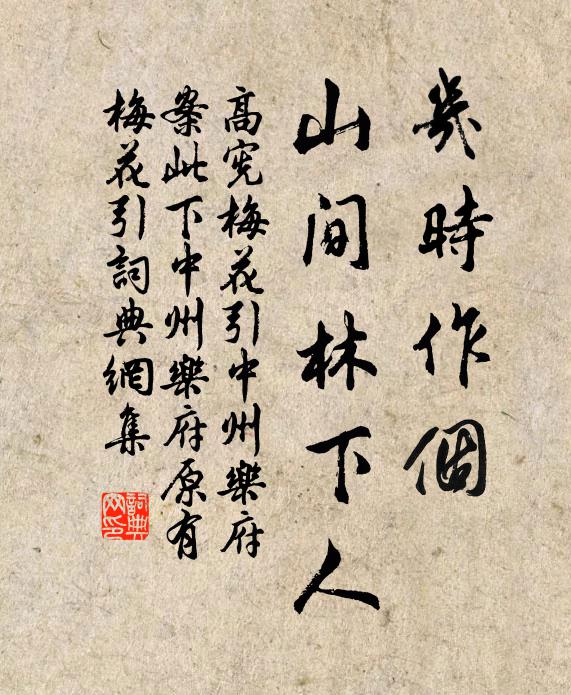 幾時作個
山間林下人
高憲梅花引中州樂府
案此下中州樂府原有
梅花引詞典網集
詞典网印